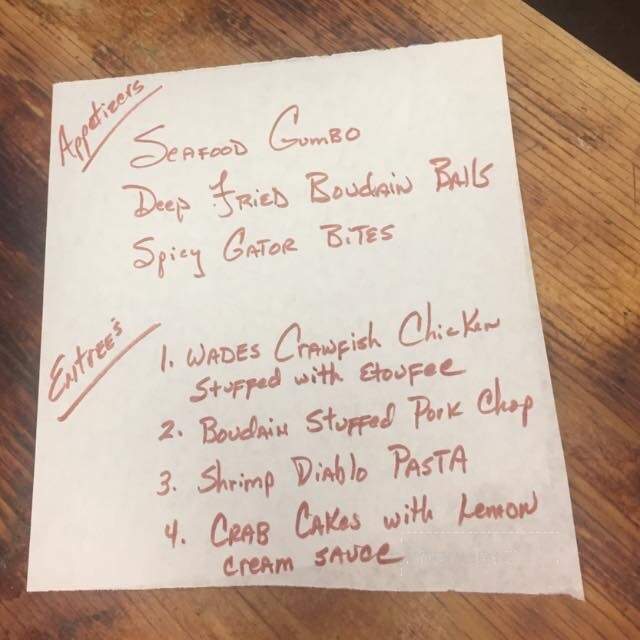 Appetizers
Seafood Gumbo
Deep Fried Boudain Balls
Spicy Gator Bites
Entree's
1. Wades Crawfish Chicken
Stuffed with Etoufee
2. Boudain Stuffed Pork Chop
3. Shrimp Diablo Pasta
4. Crab Cakes with Lemon
Cream Sauce